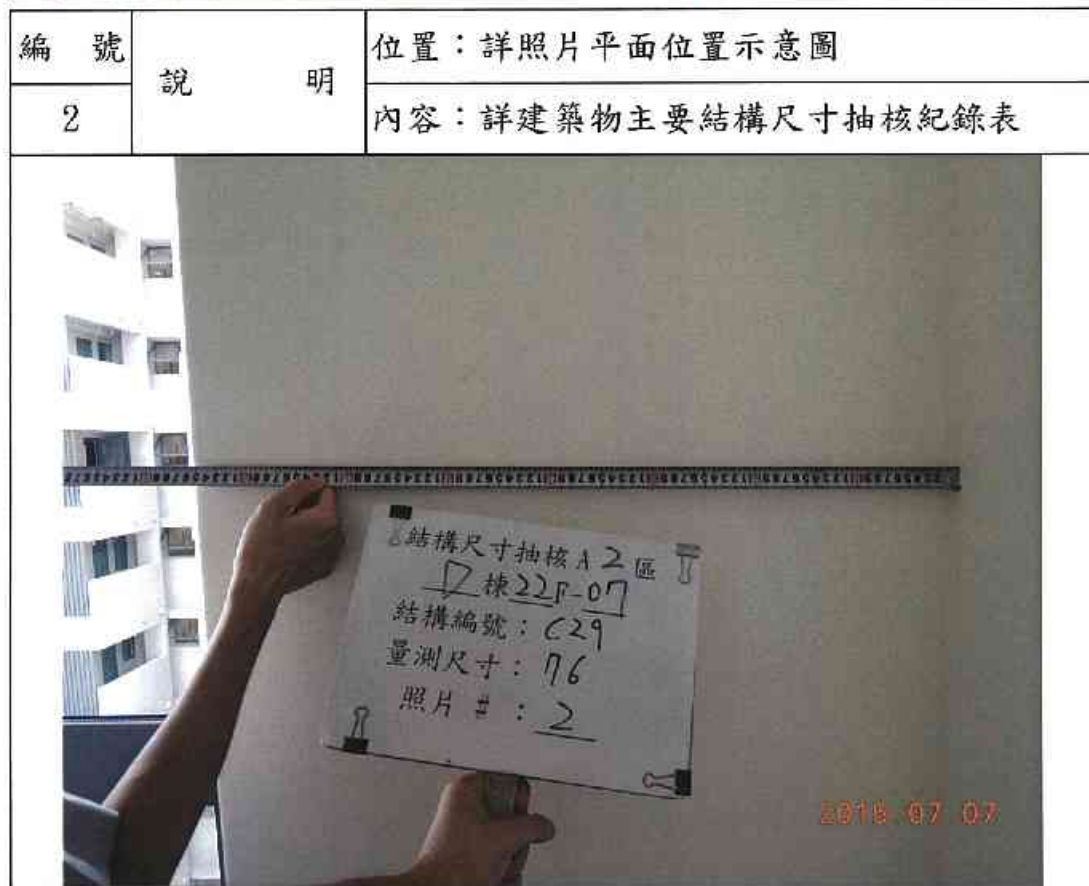 編 號
說 明
位置：詳照片平面位置示意圖
2
內容：詳建築物主要結構尺寸抽核紀錄表
結構尺寸抽核A 2 區
D 棟 22F-07
結構編號：C29
量測尺寸：76
照片 #：2